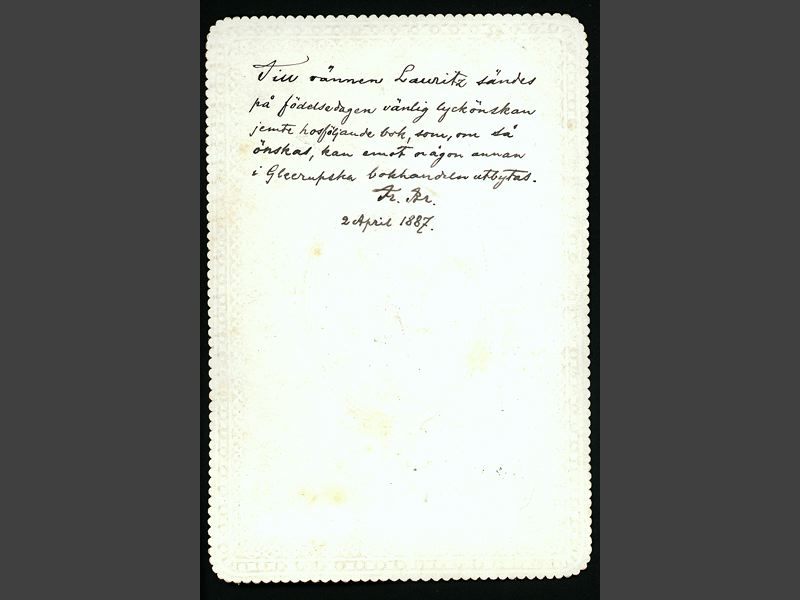 Till vännen Lauritz sändes
på födelsedagen vänlig lyckönskan
jemte hosföljande bok, som, om så
önskas, kan emot någon annan
i Gleerupska bokhandeln utbytas.
Fr.
2 April 1887.